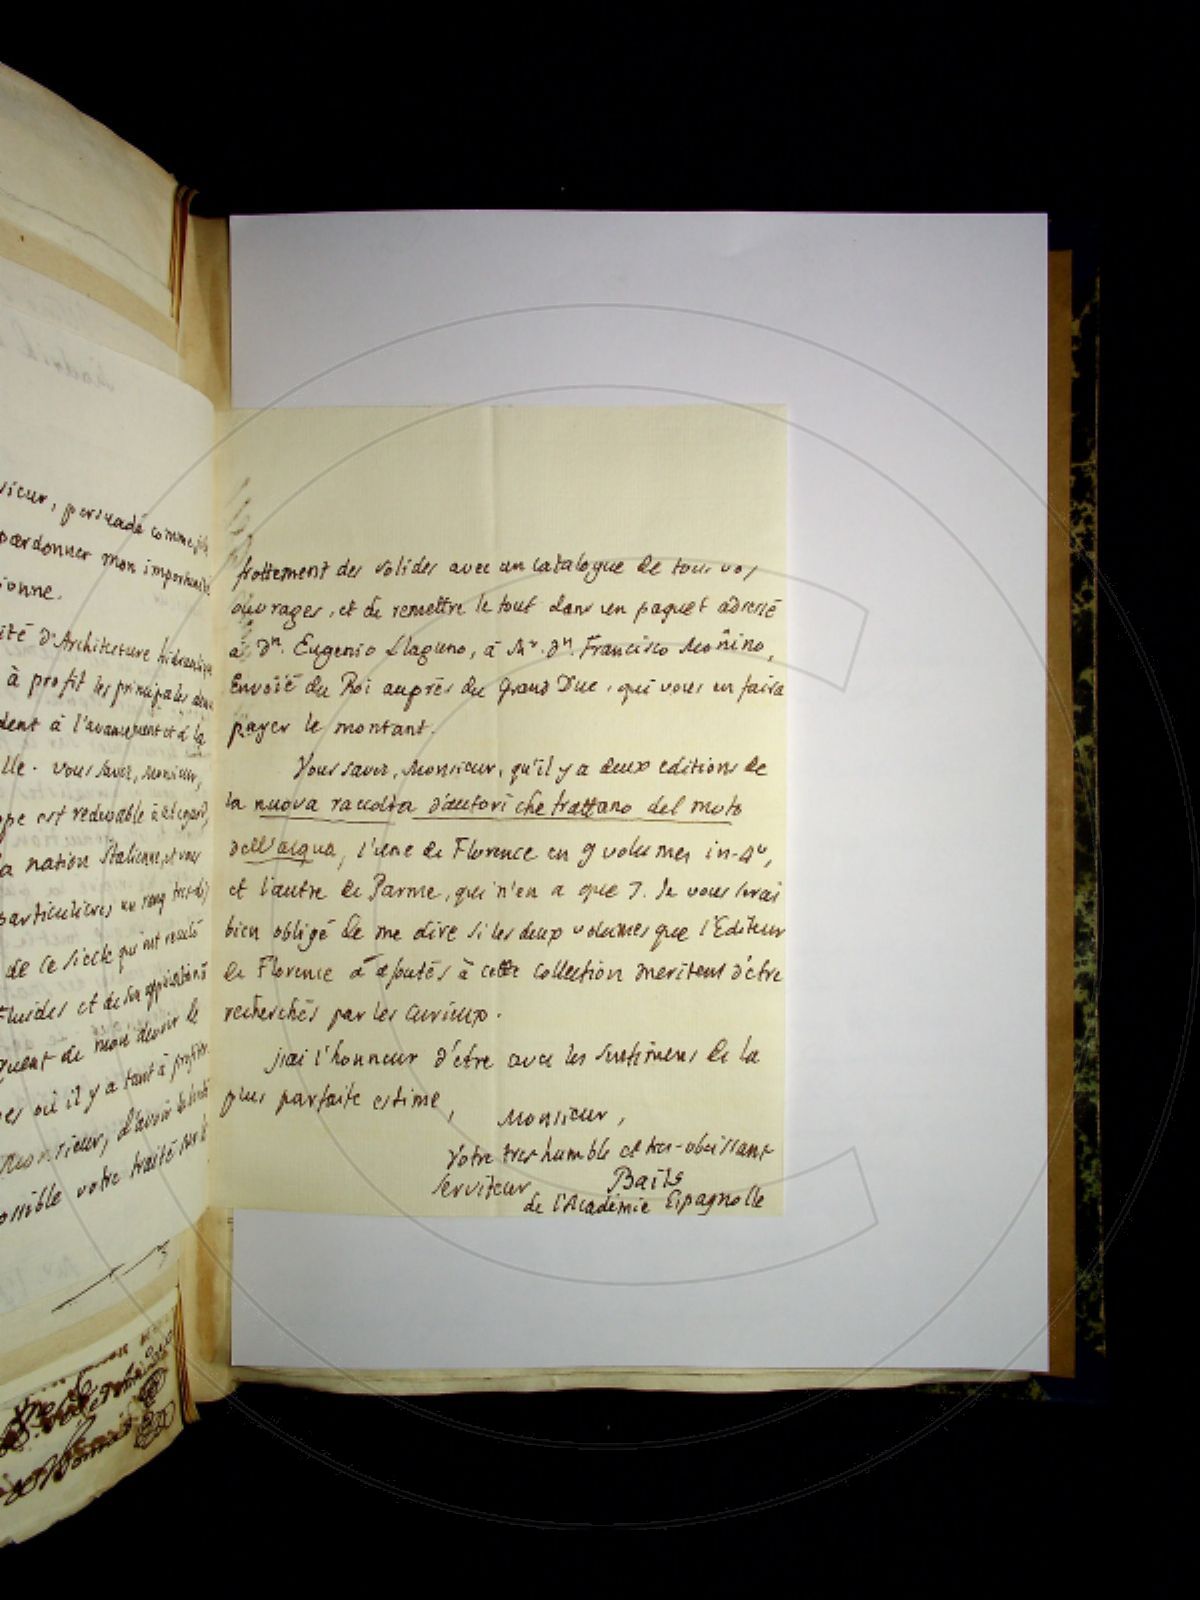 sieur, persuadé comme je
pardonner mon importunité
ionne.
ité d'Architecture hidraulique
à profit les principales
dent à l'avancement et à la
lle. vous savez, Monsieur,
ope est redevable à cet egard,
la nation Italienne, et vous
particulieres un rang tres-di
de ce siecle qui ont
Fluides et de
quent de mon devoir le
es où il y a tant à profiter
Monsieur, d'avoir la bonté
ossible votre traité sur le
frottement des solides avec un catalogue de tous vos
ouvrages, et de remettre le tout dans un paquet adressé
à Dn. Eugenio Llaguno, à Mr. Dn. Francisco Moñino,
Envoié du Roi auprès du Grand Duc, qui vous en faira
payer le montant.
Vous savez, Monsieur, qu'il y a deux editions de
la nuova raccolta d'autori che trattano del moto
dell'acqua, l'une de Florence en 9 volumes in-4o,
et l'autre de Parme, qui n'en a que 7. Je vous serai
bien obligé de me dire si les deux volumes que l'Editeur
de Florence a ajoutés à cette collection meritent d'être
recherchés par les curieux.
j'ai l'honneur d'être avec les sentimens de la
plus parfaite estime,
Monsieur,
Votre tres humble et tres-obeissant
Serviteur Bails
de l'Académie Espagnolle